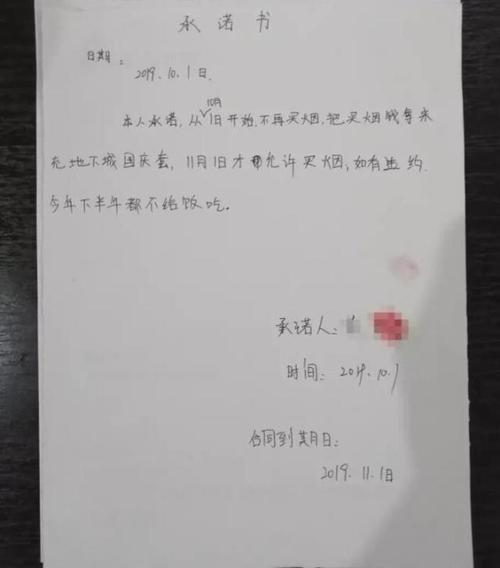 承诺书
日期:
2019.10.1日.
本人承诺,从10月1日开始,不再买烟,把买烟钱拿来
充地下城国庆套,11月1日才允许买烟,如有违约.
今年下半年都不给饭吃。
承诺人:
时间: 2019.10.1
合同到期日:
2019.11.1日